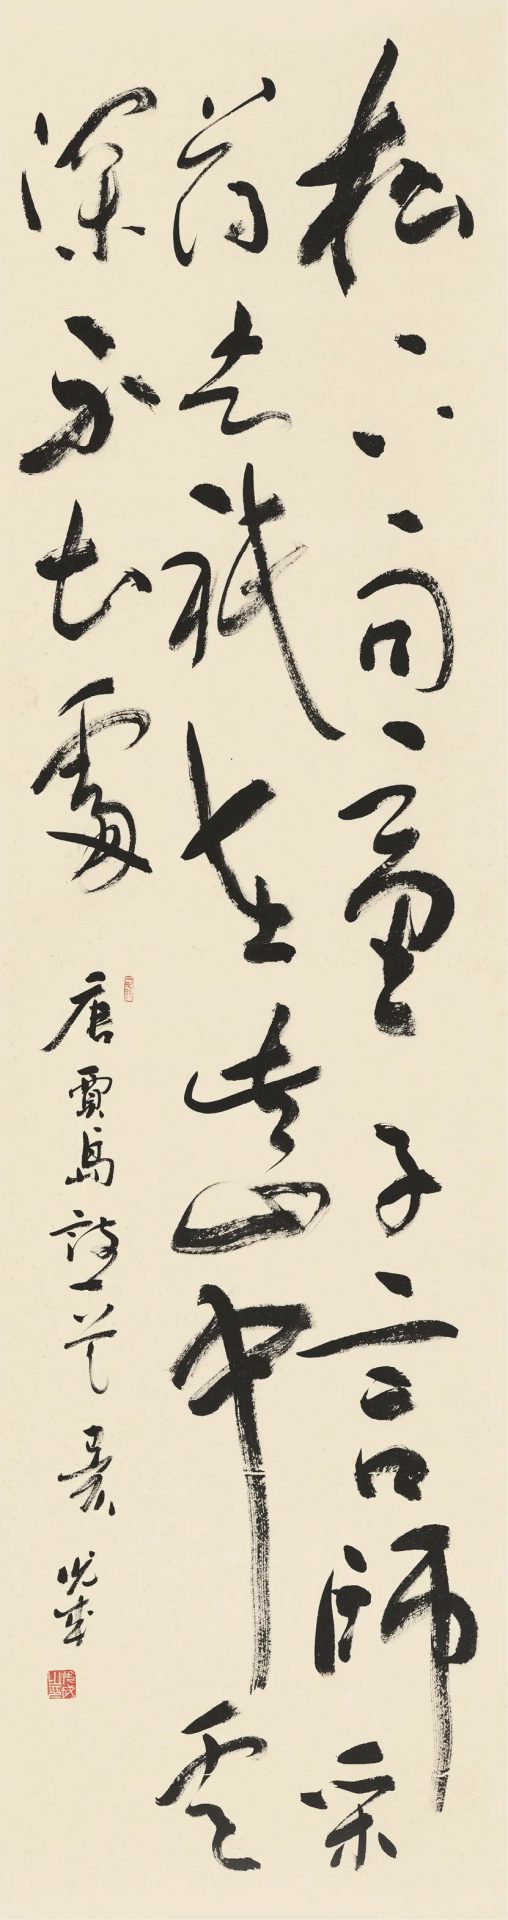 松下問童子言師采
药去祇在此山中雲
深不知處
唐賈島詩一首